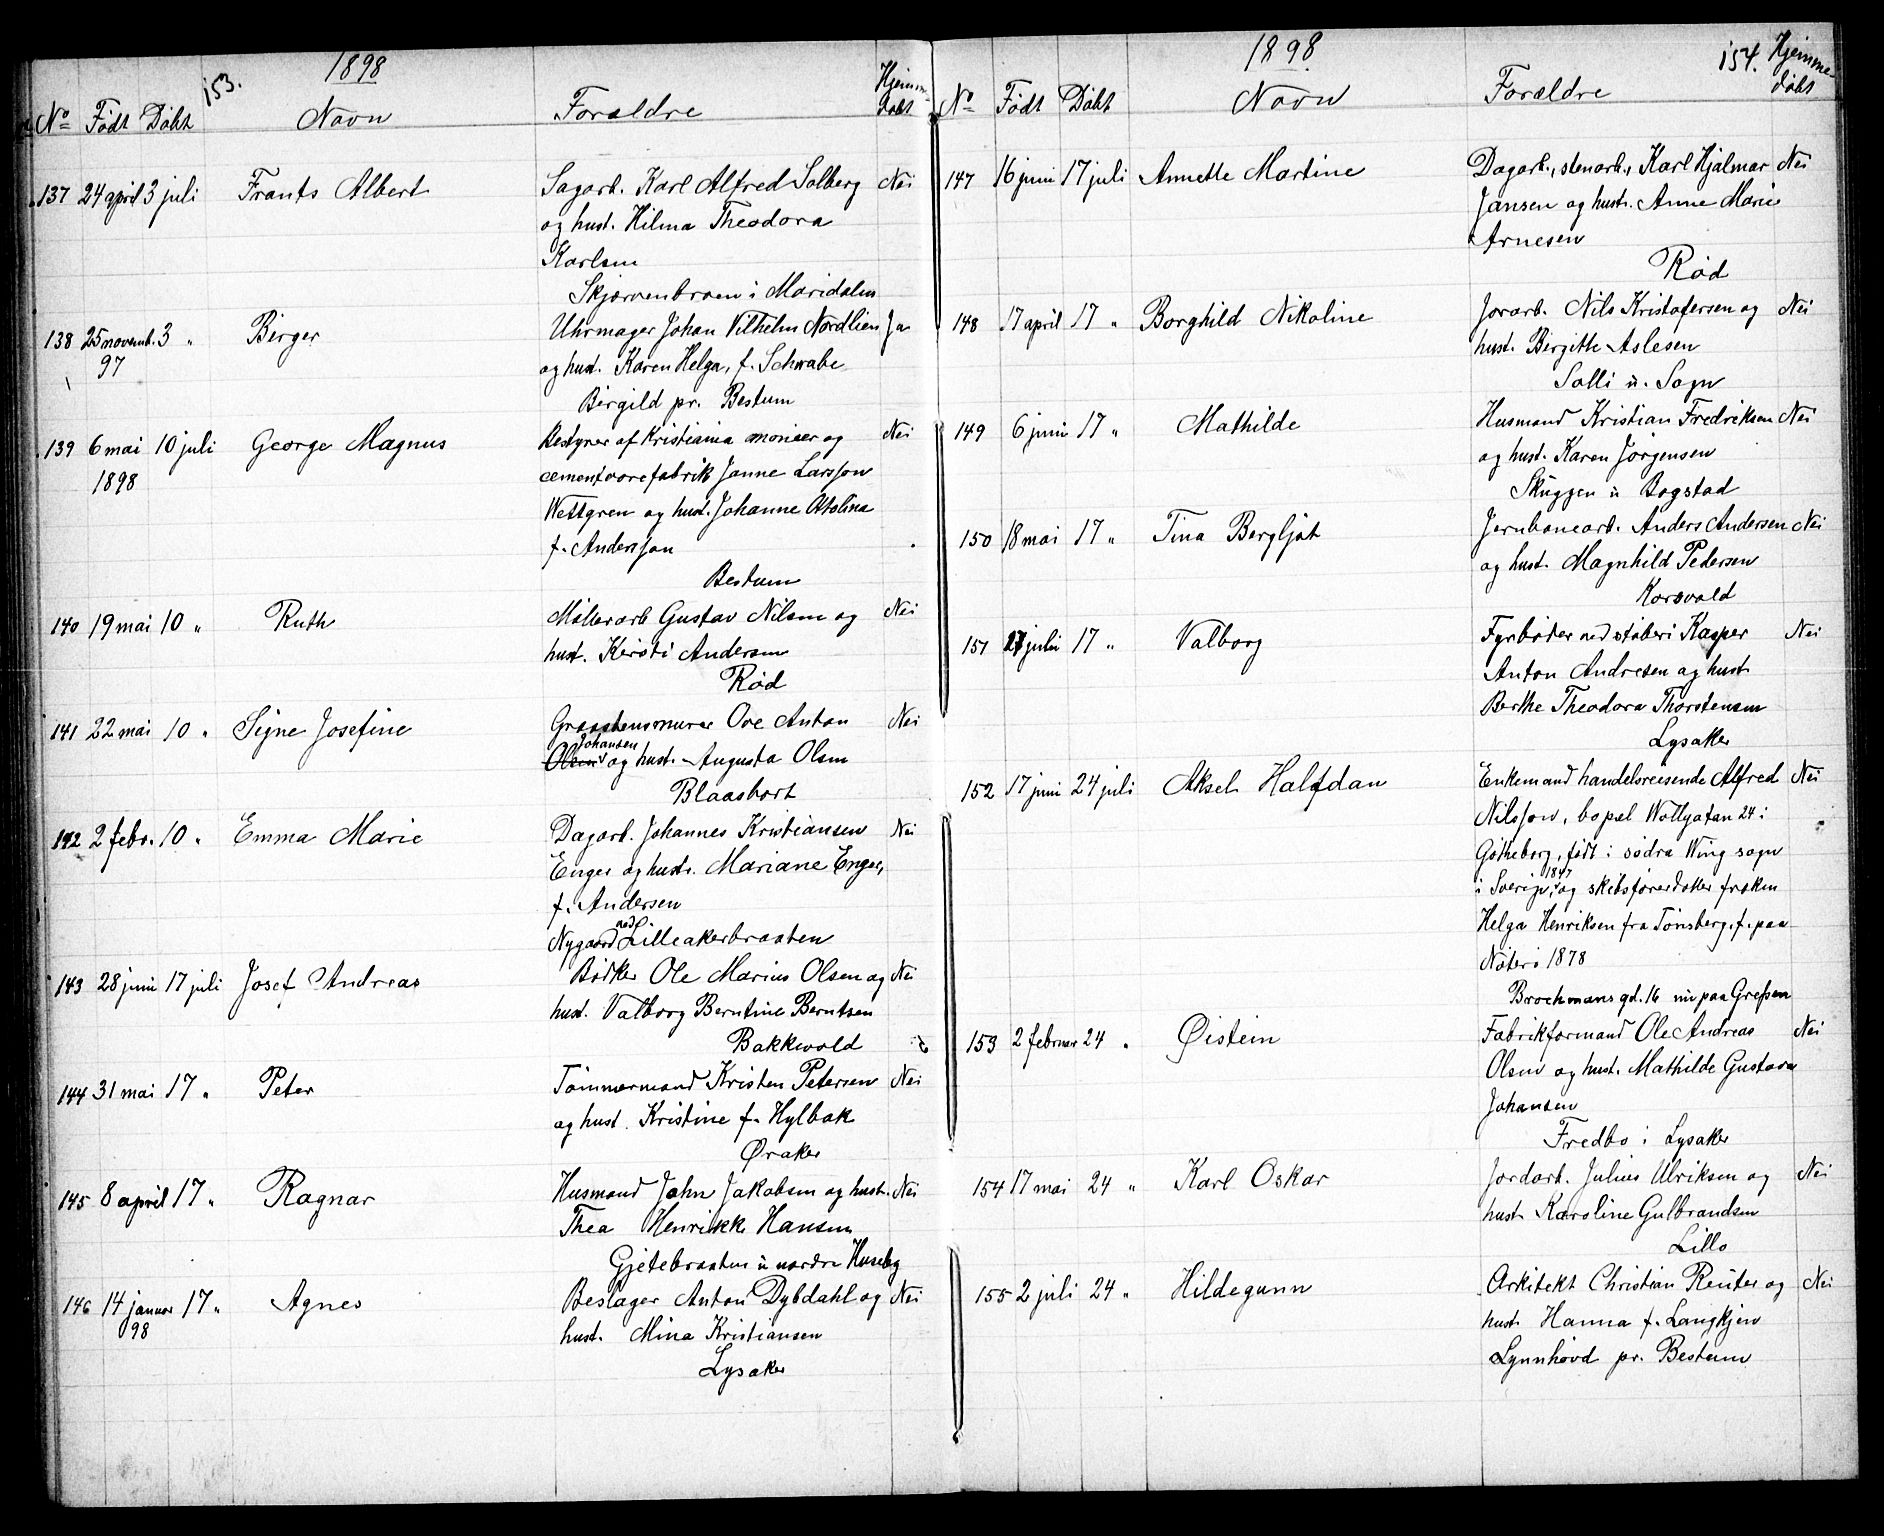 153.
1898
No Født Døbt Navn Forældre Hjemme-
døbt
137 24 april 3 juli Frants Albert Sagarb. Karl Alfred Solberg Nei
og hust. Hilma Theodora
Karlsen
Skjærvenbroen i Maridalen
138 25 novemb. 3 " Birger Uhrmager Johan Vilhelm Nordlien Ja
97 og hust. Karen Helga, f. Schwabe
Bergild pr. Bestum
139 6 mai 10 juli George Magnus Bestyrer af Kristiania monier og Nei
1898 cementvarefabrik Janne Larsson
Wettgren og hust. Johanne Atolina
f. Andersson
Bestum
140 19 mai 10 " Ruth Møllerarb Gustav Nilsen og Nei
hust. Kersti Andersen
Rød
141 22 mai 10 " Signe Josefine Graastensmurer Ove Anton Nei
Johansen
Olsen og hust. Augusta Olsen
Blaasbort
142 2 febr. 10 " Emma Marie Dagarb. Johannes Kristiansen Nei
Enger og hustr. Mariane Enger,
f. Andersen
Nygaard ned. Lilleakerbraaten
143 28 juni 17 juli Josef Andreas Bødker Ole Marius Olsen og Nei
hust. Valborg Berntine Berntsen
Bakkevold
144 31 mai 17 " Peter Tømmermand Kristen Petersen Nei
og hust. Kristine f. Hylbak
Øraker
145 8 april 17 " Ragnar Husmand John Jakobsen og hust. Nei
Thea Henrikke Hansen
Gjetebraaten u. nordre Huseby
146 14 januar 17 " Agnes Beslager Anton Dybdahl og Nei
98 hust. Mina Kristiansen
Lysaker
154.
1898
No Født Døbt Navn Forældre Hjemme-
døbt
147 16 juni 17 juli Annette Martine Dagarb., stenarb., Karl Hjalmar Nei
Jansen og hustr. Anne Marie
Arnesen
Rød
148 17 april 17 " Borghild Nikoline Jorarb. Nils Kristofersen og Nei
hust. Birgitte Aslesen
Solli u. Sogn
149 6 juni 17 " Mathilde Husmand Kristian Fredriksen Nei
og hust. Karen Jørgensen
Skuggen u Bogstad
150 18 mai 17 " Tina Bergljot Jernbanearb. Anders Andersen Nei
og hust. Magnhild Pedersen
Korsvold
151 juli 17 " Valborg Fyrbøter ved støberi Kasper Nei
Anton Andresen og hust
Berthe Theodora Thorstensen
Lysaker
152 17 juni 24 juli Aksel Halfdan Enkemand handelsreisende Alfred Nei
Nilsson, bopæl Vollgatan 24 i
Gøtheborg, født i sødra Wing sogn
i Sverige 1847, og skibsførerdatter frøken
Helga Henriksen fra Tønsberg, f. paa
Nøterø 1878
Brochmans gd. 16 nu paa Grefsen
153 2 februar 24 " Øistein Fabrikformand Ole Andreas Nei
Olsen og hust. Mathilde Gustava
Johansen
Fredbo i Lysaker
154 17 mai 24 " Karl Oskar Jordarb. Julius Ulriksen og Nei
hust. Karoline Gulbrandsen
Lillo
155 2 juli 24 " Hildegunn Arkitekt Christian Reuter og Nei
hust. Hanna f. Langkjen
Lynnhovd pr. Bestum